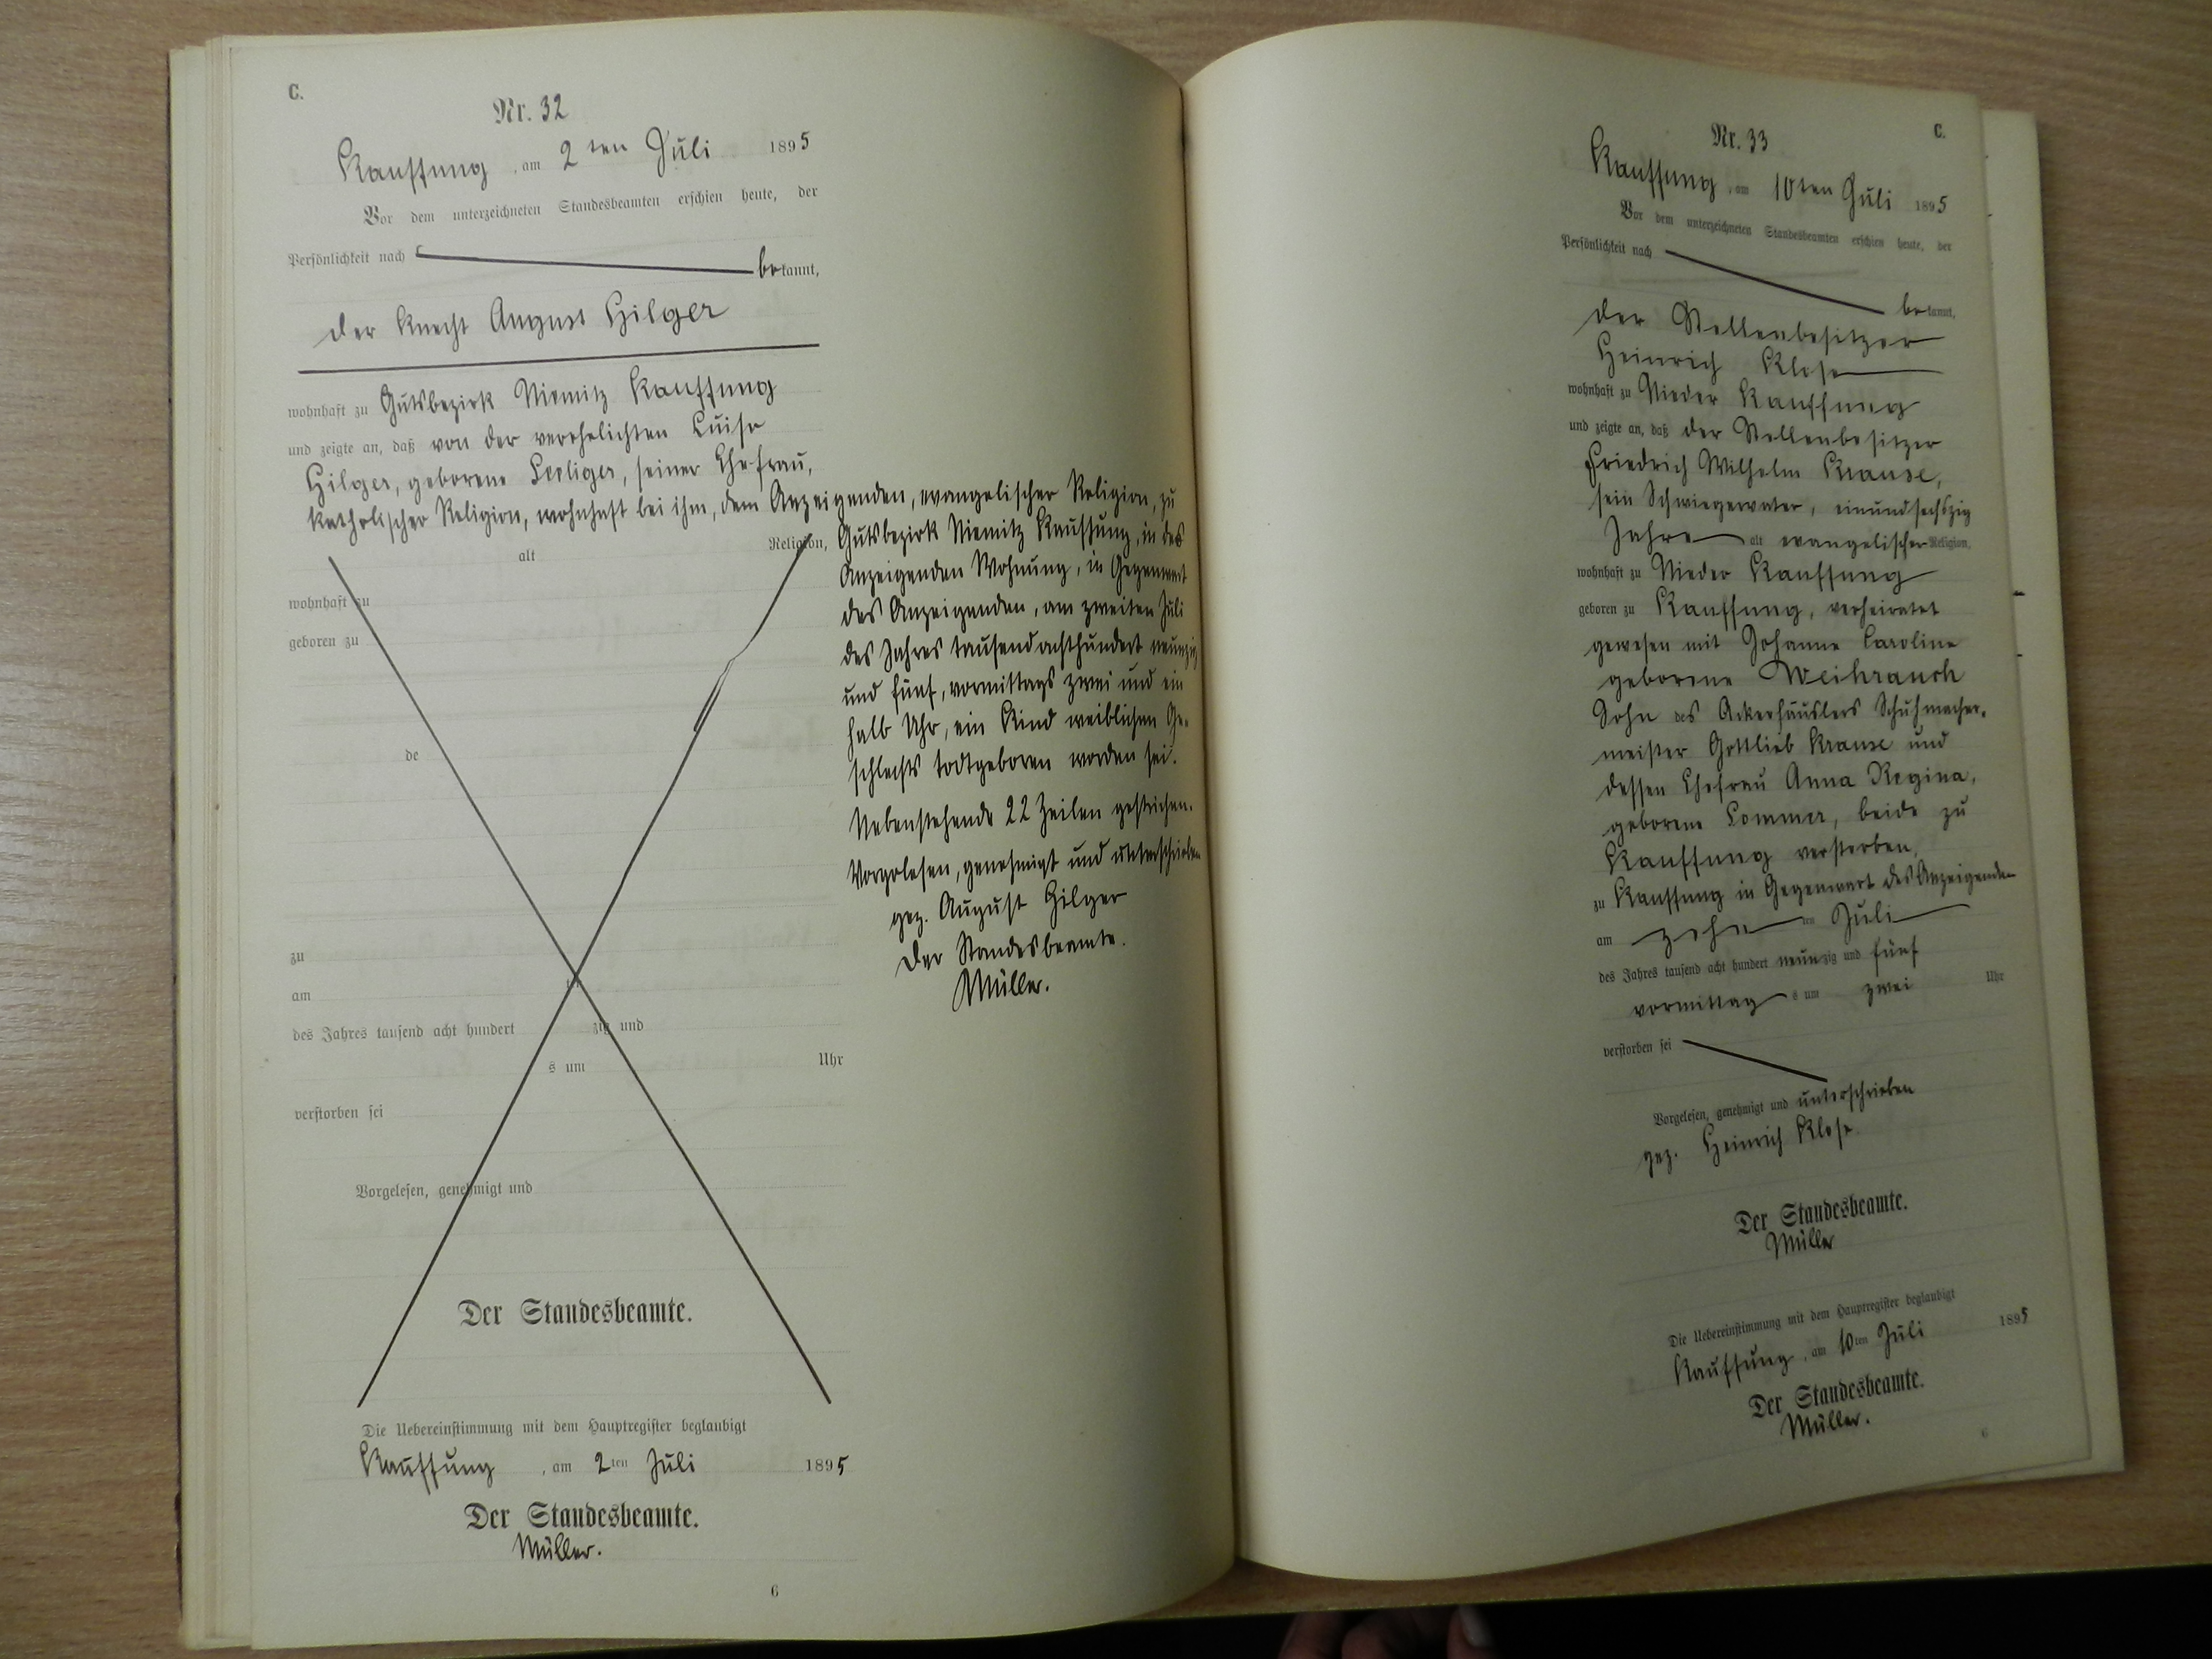 C.
Nr. 32
Kauffung, am 2ten Juli 1895
Vor dem unterzeichneten Standesbeamten erschien heute, der
Persönlichkeit nach bekannt,
der Knecht August Hilger
wohnhaft zu Gutsbezirk Niemitz Kauffung
und zeigte an, daß von der verehelichten Luise
Hilger, geborene Seeliger, seiner Ehefrau,
katholischer Religion, wohnhaft bei ihm, dem Anzeigenden, evangelischer Religion, zu
Gutsbezirk Niemitz Kauffung, in des
Anzeigenden Wohnung, in Gegenwart
des Anzeigenden, am zweiten Juli
des Jahres tausend achthundert neunzig
und fünf, vormittags zwei und ein
halb Uhr, ein Kind weiblichen Ge-
schlechts todtgeboren worden sei.
Nebenstehende 22 Zeilen gestrichen.
Vorgelesen, genehmigt und unterschrieben
gez. August Hilger
Der Standesbeamte.
Müller.
alt Religion,
wohnhaft zu
geboren zu
de
zu
am
des Jahres tausend acht hundert zig und
s um Uhr
verstorben sei
Vorgelesen, genehmigt und
Der Standesbeamte.
Die Uebereinstimmung mit dem Hauptregister beglaubigt
Kauffung, am 2ten Juli 1895
Der Standesbeamte.
Müller.
6
C.
Nr. 33
Kauffung, am 10ten Juli 1895
Vor dem unterzeichneten Standesbeamten erschien heute, der
Persönlichkeit nach bekannt,
der Stellenbesitzer
Heinrich Klose
wohnhaft zu Nieder Kauffung
und zeigte an, daß der Stellenbesitzer
Friedrich Wilhelm Krause,
sein Schwiegervater, einundsechszig
Jahre alt evangelischer Religion,
wohnhaft zu Nieder Kauffung
geboren zu Kauffung, verheiratet
gewesen mit Johanne Caroline
geborene Weihrauch
Sohn des Ackerhäuslers Schuhmacher-
meister Gottlieb Krause und
dessen Ehefrau Anna Regina,
geborene Sommer, beide zu
Kauffung verstorben,
zu Kauffung in Gegenwart des Anzeigenden
am zehnten Juli
des Jahres tausend acht hundert neunzig und fünf
vormittags um zwei Uhr
verstorben sei
Vorgelesen, genehmigt und unterschrieben
gez. Heinrich Klose.
Der Standesbeamte.
Müller
Die Uebereinstimmung mit dem Hauptregister beglaubigt
Kauffung, am 10ten Juli 1895
Der Standesbeamte.
Müller.
6